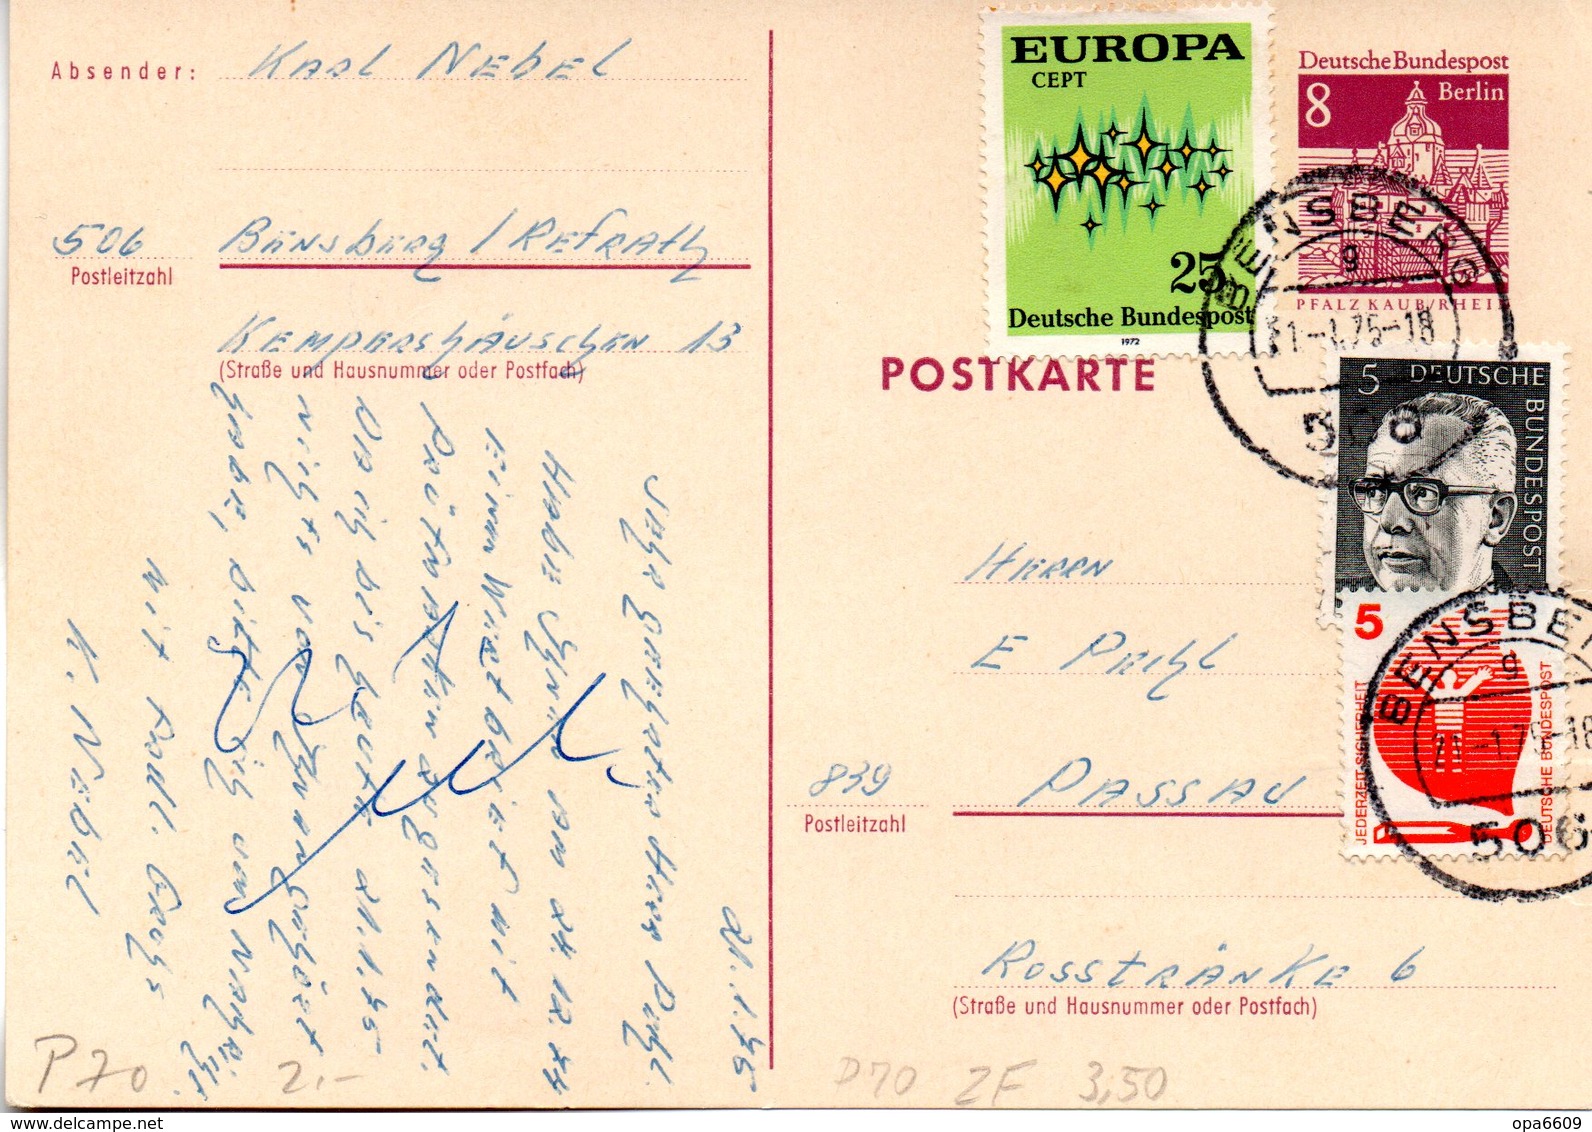 Absender: Karl Nebel
506 Bensberg / Refrath
Postleitzahl
Kempershäuschen 13
(Straße und Hausnummer oder Postfach)
21.1.75
Sehr geehrter Herr Pichl.
Habe Ihnen am 24.12.74
einen Wertbrief mit
Prüfmarken zugesendet.
Da ich bis heute 21.1.75
nichts von Ihnen gehört
habe, bitte ich um Nachricht.
Mit frdl. Gruß
K. Nebel
P70 2.-
EUROPA
CEPT
25
Deutsche Bundespost
1972
Deutsche Bundespost
8 Berlin
PFALZ KAUB/RHEIN
BENSBERG
g
21.-1.75-18
POSTKARTE
5 DEUTSCHE BUNDESPOST
5
JEDERZEIT SICHERHEIT
DEUTSCHE BUNDESPOST
g
21.-1.75-18
506
Herrn
E Pichl
839 Passau
Postleitzahl
Rosstränke 6
(Straße und Hausnummer oder Postfach)
P70 ZF 3,50
opa6609